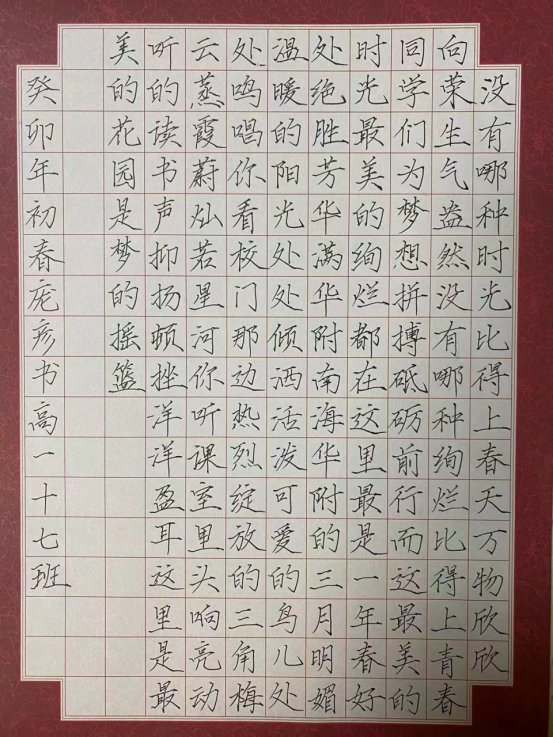 没有哪种时光比得上春天万物欣欣
向荣生气盎然没有哪种绚烂比得上青春
同学们为梦想拼搏砥砺前行而这最美的
时光最美的绚烂都在这里最是一年春好
处绝胜芳华满华附南海华附的三月明媚
温暖的阳光处处倾洒活泼可爱的鸟儿处
处鸣唱你看校门那边热烈绽放的三角梅
云蒸霞蔚灿若星河你听课室里头响亮动
听的读书声抑扬顿挫洋洋盈耳这里是最
美的花园是梦的摇篮
癸卯年初春庞彦书高一十七班